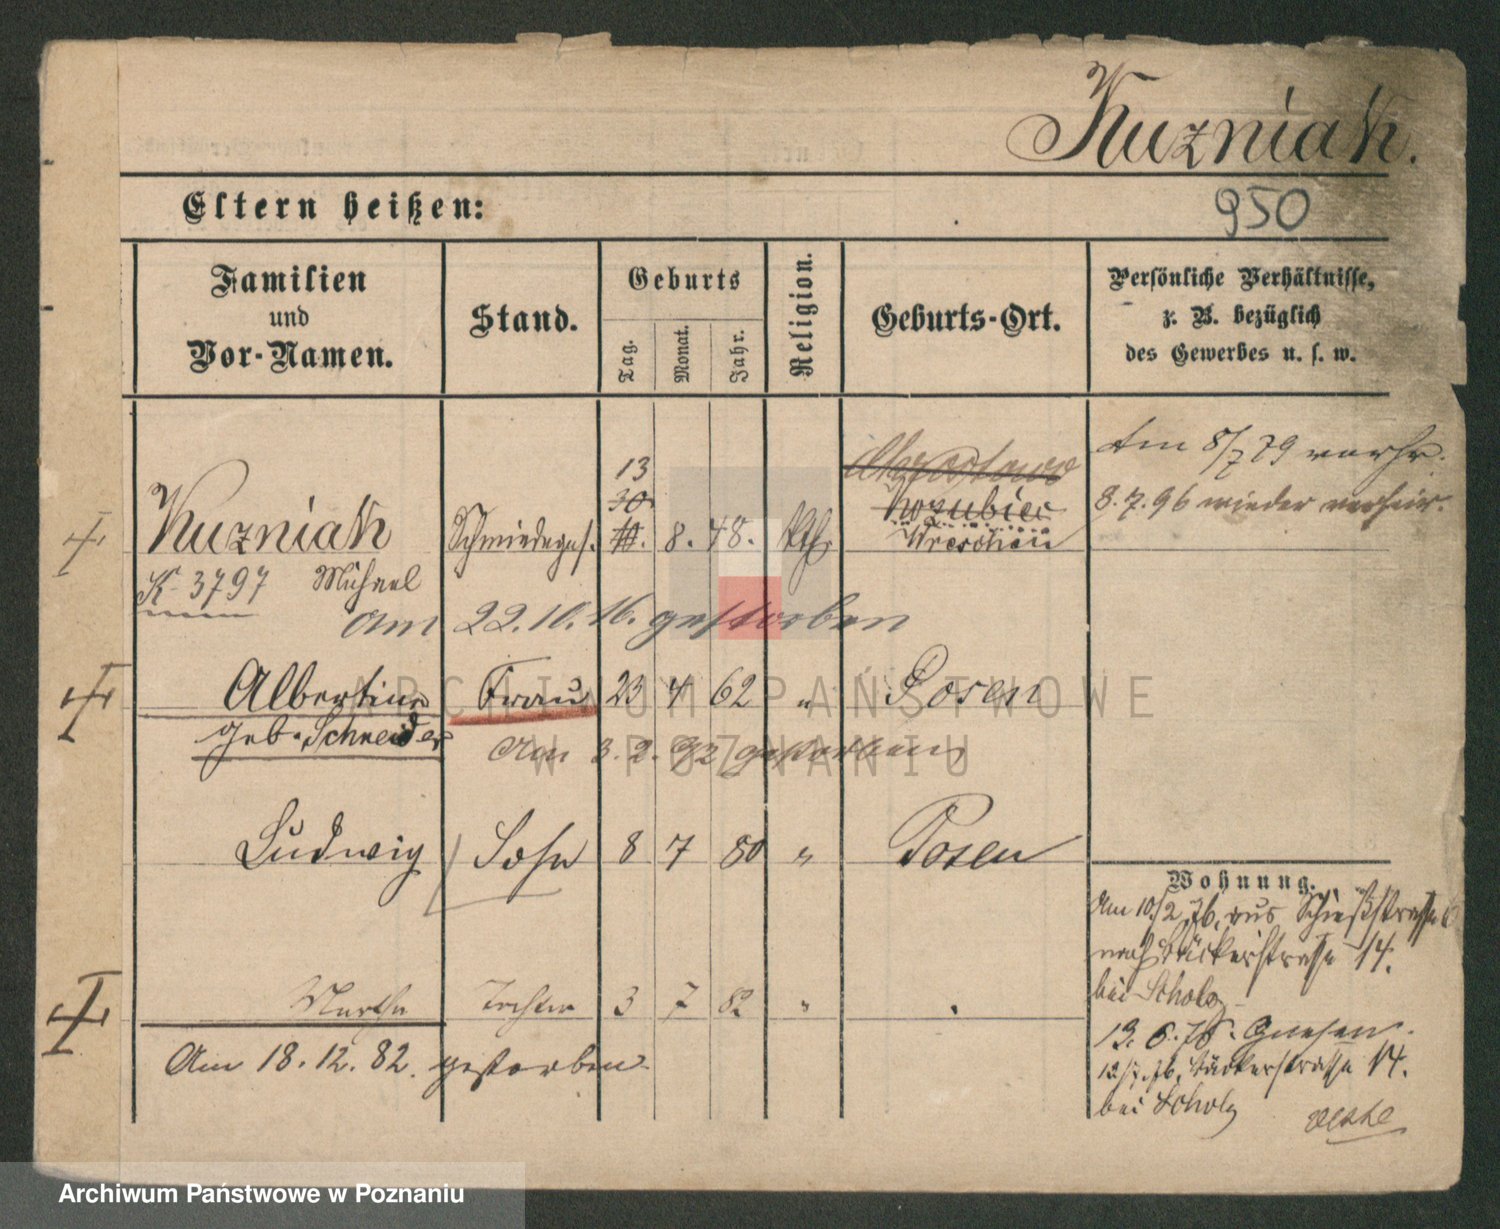 Kuzniak.
950
Eltern heißen:
Familien und Vor-Namen.
Stand.
Geburts
Tag.
Monat.
Jahr.
Religion.
Geburts-Ort.
Persönliche Verhältnisse,
z. B. bezüglich
des Gewerbes u. s. w.
Am 8/7 79 verhr.
8. 7. 96 wieder verheir.
13
30
10.
Kozubiec
Wreschen
Kuzniak Schmiedeges. 8. 48. kth
K 3797 Michael
Am 22. 10. 16. gestorben
Albertine Frau 23 4 62 " Posen
geb. Schneider
Am 3. 2. 92 gestorben
Ludwig Sohn 8 7 80 " Posen
Wohnung.
Am 10/2 76. aus Schießstrasse 6
nach Bäckerstrasse 14.
bei Scholz
Martha Tochter 3 7 82 "
13. 6. 76. Gnesen.
12/7. 76. Bäckerstrasse 14.
bei Scholz
Am 18. 12. 82. gestorben
ARCHIWUM PAŃSTWOWE
W POZNANIU
Archiwum Państwowe w Poznaniu